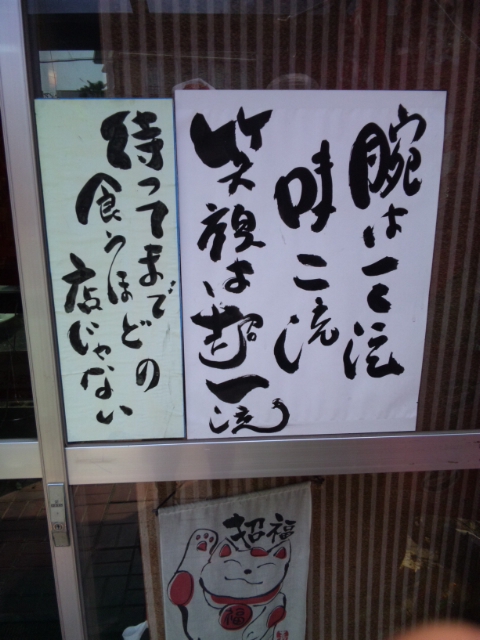 腕は三流
味二流
笑顔は超一流
待ってまで
食うほどの
店じゃない
招福
福